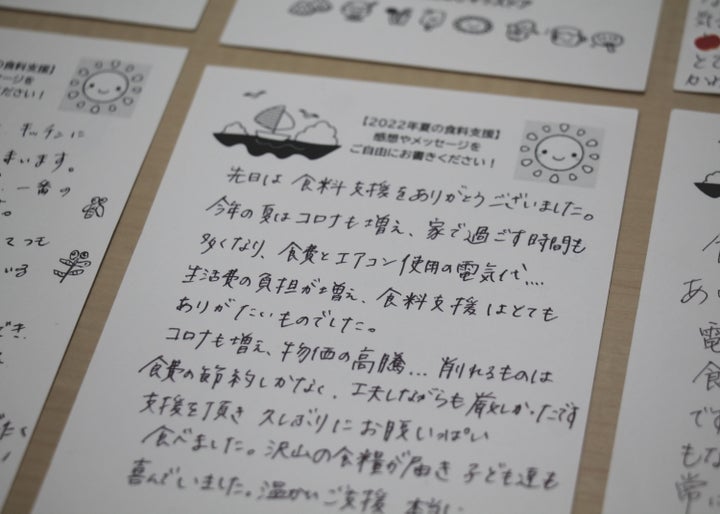 【2022年夏の食料支援】
感想やメッセージを
ご自由にお書きください！
先日は 食料支援をありがとうございました。
今年の夏はコロナも増え、家で過ごす時間も
多くなり、食費とエアコン使用の電気代…
生活費の負担が増え、食料支援はとても
ありがたいものでした。
コロナも増え、物価の高騰… 削れるものは
食費の節約しかなく、工夫しながらも厳しかったです
支援を頂き 久しぶりにお腹いっぱい
食べました。沢山の食糧が届き 子ども達も
喜んでいました。温かいご支援 本当に
の食料支援】
セージを
ださい！
キッチンに
まいます。
一番の
ても
いる
でき、
あ
電
食
です
もな
常に